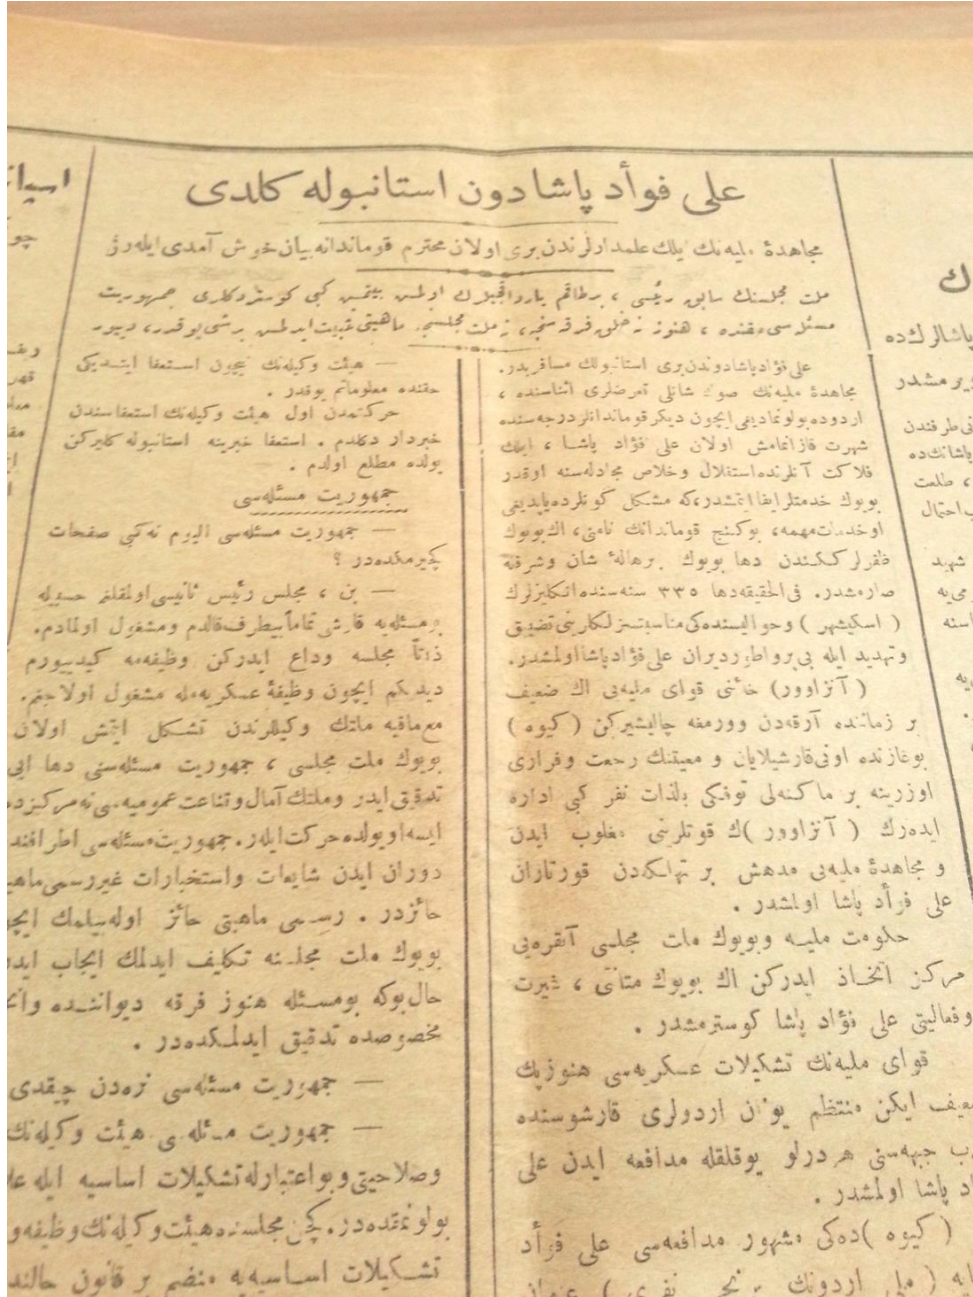 علی فوأد پاشا دون استانبوله کلدی
مجاهدهٔ ملیه‌نك ایلك علمدارلرندن بری اولان محترم قوماندانه بیان خوش آمدی ایله‌رز
ملت مجلسنك سابق رئیسی ، برطاقم یارداقجیلرك اولمش بیتمش کبی کوستردکلری جمهوریت
مسئله‌سی حقنده ، هنوز نه خلق فرقه‌سنجه ، نه ملت مجلسنجه ماهیتی تثبیت ایدلمش برشی یوقدر ، دییور
علی فؤاد پاشا دوندن بری استانبولك مسافریدر.
مجاهدهٔ ملیه‌نك صوك شانلی تعرضلری اثناسنده ،
اردوده بولونمادیغی ایچون دیکر قوماندانلر درجه‌سنده
شهرت قازانمامش اولان علی فؤاد پاشا ، ایلك
فلاکت آنلرنده استقلال وخلاص مجادله‌سنه اوقدر
بویوك خدمتلر ایفا ایتمشدر، که مشکل کونلرده یاپدیغی
او خدمات مهمه، بوکنج قوماندانك نامنی، اك بویوك
ظفرلرکنکندن دها بویوك برهالهٔ شان وشرفله
صارمشدر. فی‌الحقیقه دها ٣٣٥ سنه‌سنده انکلیزلرك
( اسکیشهر ) وحوالیسنده‌کی مناسبتسزلکلرینی تضییق
وتهدید ایله بی‌پروا طوردیران علی فؤاد پاشا اولمشدر.
( آنزاوور) خائنی قوای ملیه‌یی اك ضعیف
بر زماننده آرقه‌دن وورمغه چالیشیرکن ( کیوه )
بوغازنده اونی قارشیلایان و معیتنك رجعت وفراری
اوزرینه بر ماکنه‌لی توفنکی بالذات نفر کبی اداره
ایده‌رك ( آنزاوور )ك قوتلرینی مغلوب ایدن
و مجاهدهٔ ملیه‌یی مدهش بر تهلکه‌دن قورتاران
علی فؤاد پاشا اولمشدر .
حکومت ملیه وبویوك ملت مجلسی آنقره‌یی
مرکز اتخاذ ایدرکن اك بویوك متانت ، غیرت
وفعالیتی علی فؤاد پاشا کوسترمشدر .
قوای ملیه‌نك تشکیلات عسکریه‌سی هنوز پك
ضعیف ایکن منتظم یونان اردولری قارشوسنده
جبهه‌سنی هردرلو یوقلقله مدافعه ایدن علی
پاشا اولمشدر .
( کیوه )ده‌کی مشهور مدافعه‌سی علی فوأد
( ملی اردونك برنجی نفری ) عنوان
— هیئت وکیله‌نك نیچون استعفا ایتدیکی
حقنده معلوماتم یوقدر .
حرکتمدن اول هیئت وکیله‌نك استعفاسندن
خبردار دکلدم . استعفا خبرینه استانبوله کلیرکن
یولده مطلع اولدم .
جمهوریت مسئله‌سی
— جمهوریت مسئله‌سی الیوم نه‌کبی صفحات
کچیرمکده‌در ؟
— بن ، مجلس رئیس ثانیسی اولمقلغم حسبیله
بومسئله‌یه قارشی تماماً بیطرف قالدم ومشغول اولمادم.
ذاتاً مجلسه وداع ایدرکن وظیفه‌مه کیدییورم
دیدیکم ایچون وظیفهٔ عسکریه‌مله مشغول اولاجغم.
مع‌مافیه ملتك وکیللرندن تشکل ایتمش اولان
بویوك ملت مجلسی ، جمهوریت مسئله‌سنی دها ایی
تدقیق ایدر وملتك آمال وقناعت عمومیه‌سی نه مرکزده
ایسه او یولده حرکت ایلر. جمهوریت مسئله‌سی اطرافنده
دوران ایدن شایعات واستخبارات غیررسمی ماهیتی
حائزدر . رسمی ماهیتی حائز اوله‌بیلمك ایچون
بویوك ملت مجلسنه تکلیف ایدلمك ایجاب ایدر
حال بوکه بومسئله هنوز فرقه دیواننده
مخصوصده تدقیق ایدلمکده‌در .
— جمهوریت مسئله‌سی نره‌دن چیقدی
— جمهوریت مسئله‌سی هیئت وکیله‌نك
وصلاحیتی وبو اعتبارله تشکیلات اساسیه ایله
بولونمقده‌در. کچن مجلسده هیئت وکیله‌نك وظیفه و
تشکیلات اساسیه‌یه منضم بر قانون حالنده